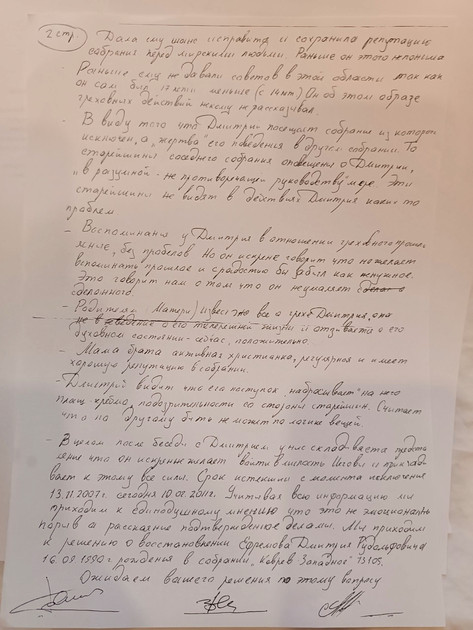 2 стр. Дала ему шанс исправится и сохранила репутацию
собрания перед мирскими людьми. Раньше он этого не понимал
Раньше ему не давали советов в этой области так как
он сам был 17 лети меньше (с 14 лет) Он об этом образе
греховных действий никому не рассказывал.
- В виду того что Дмитрий посещает собрание из которого
исключен, а "жертва" его поведения в другом собрании. То
старейшины соседнего собрания оповещены о Дмитрии,
"в разумной - не противоречащей руководству" мере. Эти
старейшины не видят в действиях Дмитрия каких-то
проблем
- Воспоминания у Дмитрия в отношении греховного прошлого
без пробелов Но он искрене говорит что не желает
вспоминать прошлое и с радостью бы забыл как ненужное.
Это говорит нам о том что он не умаляет
сделанного
- Родители (Матери) известно все о грехе Дмитрия, она
о его теперешней жизни и отзывается о его
духовном состоянии - сейчас, положительно
- Мама брата активная христианка, регулярная и имеет
хорошую репутацию в собрании.
- Дмитрий видит что его поступок "набрасывает" на него
плащ подозрительности со стороны старейшин. Считает
что по другому быть не может по логике вещей.
- В целом после беседы с Дмитрием у нас складывается представ
ление что он искренне желает войти в милость Иеговы и прикладывает
к этому все силы. Срок истекший с момента исключения
13.11.2007г. сегодня 10.02.2011г. Учитывая всю информацию мы
приходим к единодушному мнению что это не эмоциональный
порыв а раскаяние подтвержденное делами. Мы приходим
к решению о восстановлении Ефремова Дмитрия Рудольфовича
16.09.1990г рождения в собрании "Ковров Западное" 73105.
Ожидаем вашего решения по этому вопросу